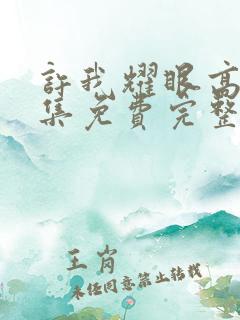 許我耀眼高
集免費完整
王肖
未經同意禁止轉載